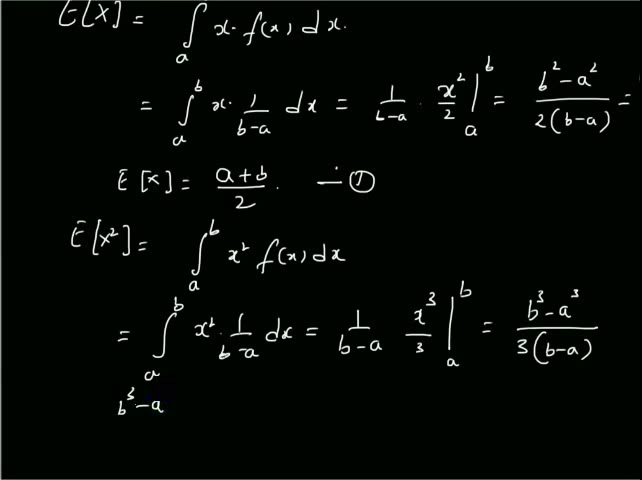 E[X] = ∫ₐ x· f(x) dx.
= ∫ₐᵇ x· 1/(b-a) dx = 1/(b-a) · x²/2 |ₐᵇ = (b²-a²)/(2(b-a)) =
E[X] = (a+b)/2. — ①
E[X²] = ∫ₐᵇ x² f(x) dx
= ∫ₐᵇ x²· 1/(b-a) dx = 1/(b-a) x³/3 |ₐᵇ = (b³-a³)/(3(b-a))
b³-a